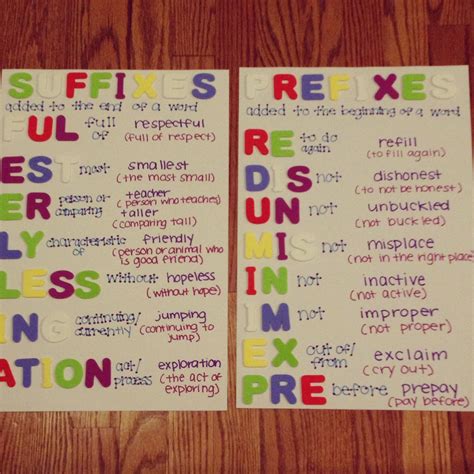 SUFFIXES
added to the end of a word
FUL full of respectful
(full of respect)
EST most smallest
(the most small)
ER person or comparing teacher
(person who teaches)
taller
(comparing tall)
LY characteristic of friendly
(person or animal who is good friend)
LESS without hopeless
(without hope)
ING continuing/currently jumping
(continuing to jump)
ATION act/process exploration
(the act of exploring)
PREFIXES
added to the beginning of a word
RE to do again refill
(to fill again)
DIS not dishonest
(to not be honest)
UN not unbuckled
(not buckled)
MIS not misplace
(not in the right place)
IN not inactive
(not active)
IM not improper
(not proper)
EX out of/from exclaim
(cry out)
PRE before prepay
(pay before)